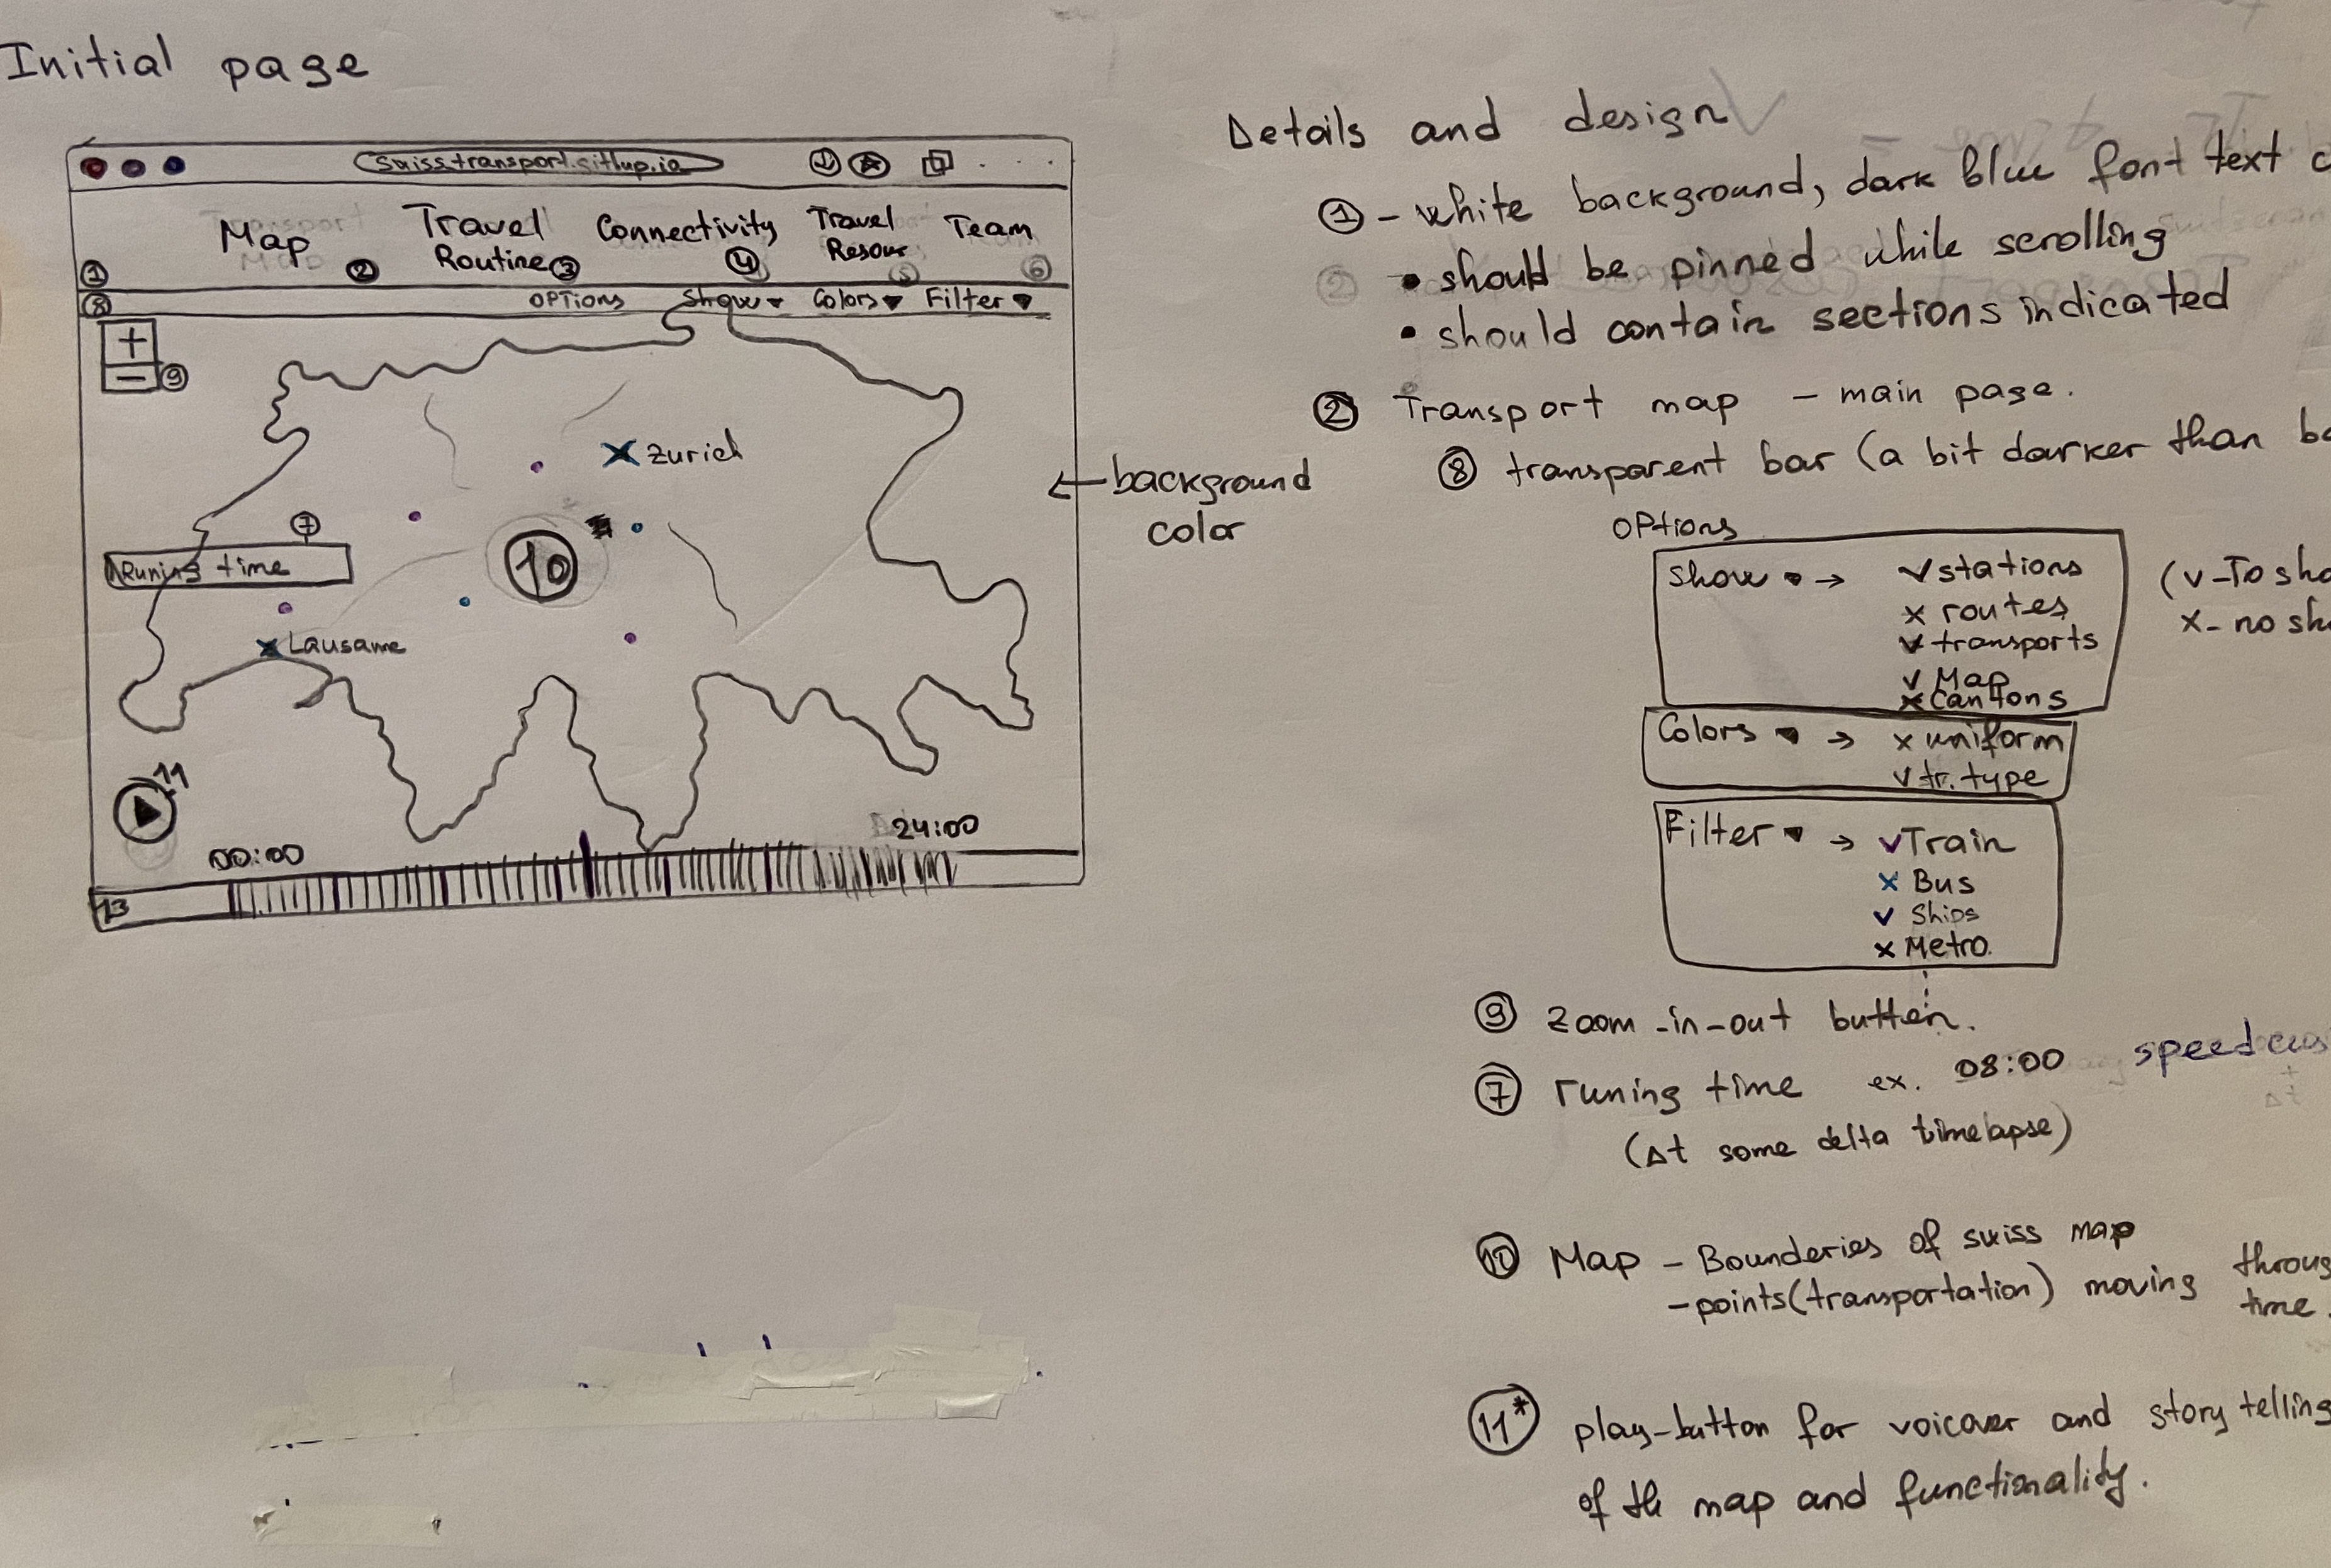 Initial page
suisstransport.githup.io
Map
Travel
Routine
Connectivity
Travel
Resour
Team
1
2
3
4
5
6
8
OPTions
Show
Colors
Filter
+
-
9
Zurich
7
Runing time
10
Lausanne
background
color
11
00:00
24:00
13
Details and design
1 - white background, dark blue font text c
• should be pinned while scrolling
2
• should contain sections indicated
2 Transport map - main page.
8 transparent bar (a bit darker than ba
OPtions
Show → v stations
x routes
v transports
v Map
x Cantons
(v-To sho
x- no sh
Colors → x uniform
v tr. type
Filter → v Train
x Bus
v Ships
x Metro.
9 Zoom-in-out button.
7 runing time ex. 08:00 speed
(Δt some delta timelapse)
Δt
10 Map - Bounderies of swiss map
- points (transportation) moving throug
time.
11* play-button for voicover and story telling
of the map and functionality.